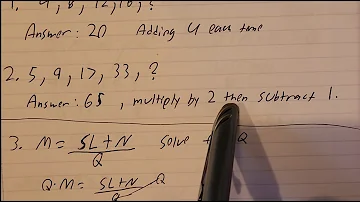 1. 4, 8, 12, 16, ?
Answer: 20 Adding 4 each time
2. 5, 9, 17, 33, ?
Answer: 65, multiply by 2 then subtract 1.
3. M = 5L+N/Q solve Q
Q·M = 5L+N/Q Q